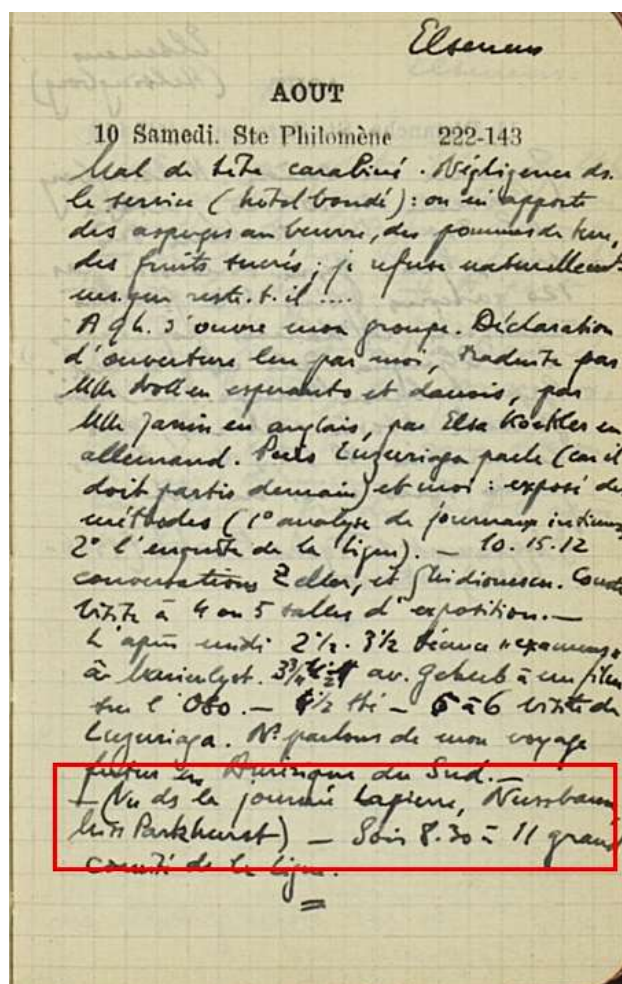 Elseneur
AOUT
10 Samedi. Ste Philomène 222-143
Mal de tête carabiné. Négligence ds.
le service (hôtel bondé): on m'apporte
des asperges au beurre, des pommes de terre,
des fruits sucrés; je refuse naturellement
ms. que reste-t-il ....
A 9h. s'ouvre mon groupe. Déclaration
d'ouverture lue par moi, traduite par
Mlle en esperanto et danois, par
Mlle Jamin en anglais, par Elsa Koehler en
allemand. Puis Luzuriaga parle (car il
doit partir demain) et moi: exposé des
méthodes (1° analyse de journaux intimes,
2° l'enquête de la Ligue). — 10.15.12
conversations Zeller, et Ghidionescu. Courte
visite à 4 ou 5 salles d'exposition. —
L'après midi 2½. 3½ séance "examens"
à 3¾ av. Geheeb à un film
sur l'Oso. — ½ thé — 5 à 6 visite de
Luzuriaga. Ns parlons de mon voyage
futur en Amérique du Sud. —
— (Vu ds la journée Lapierre, Nussbaum,
Miss Parkhurst) — Soir 8.30 à 11 grand
comité de la Ligue.